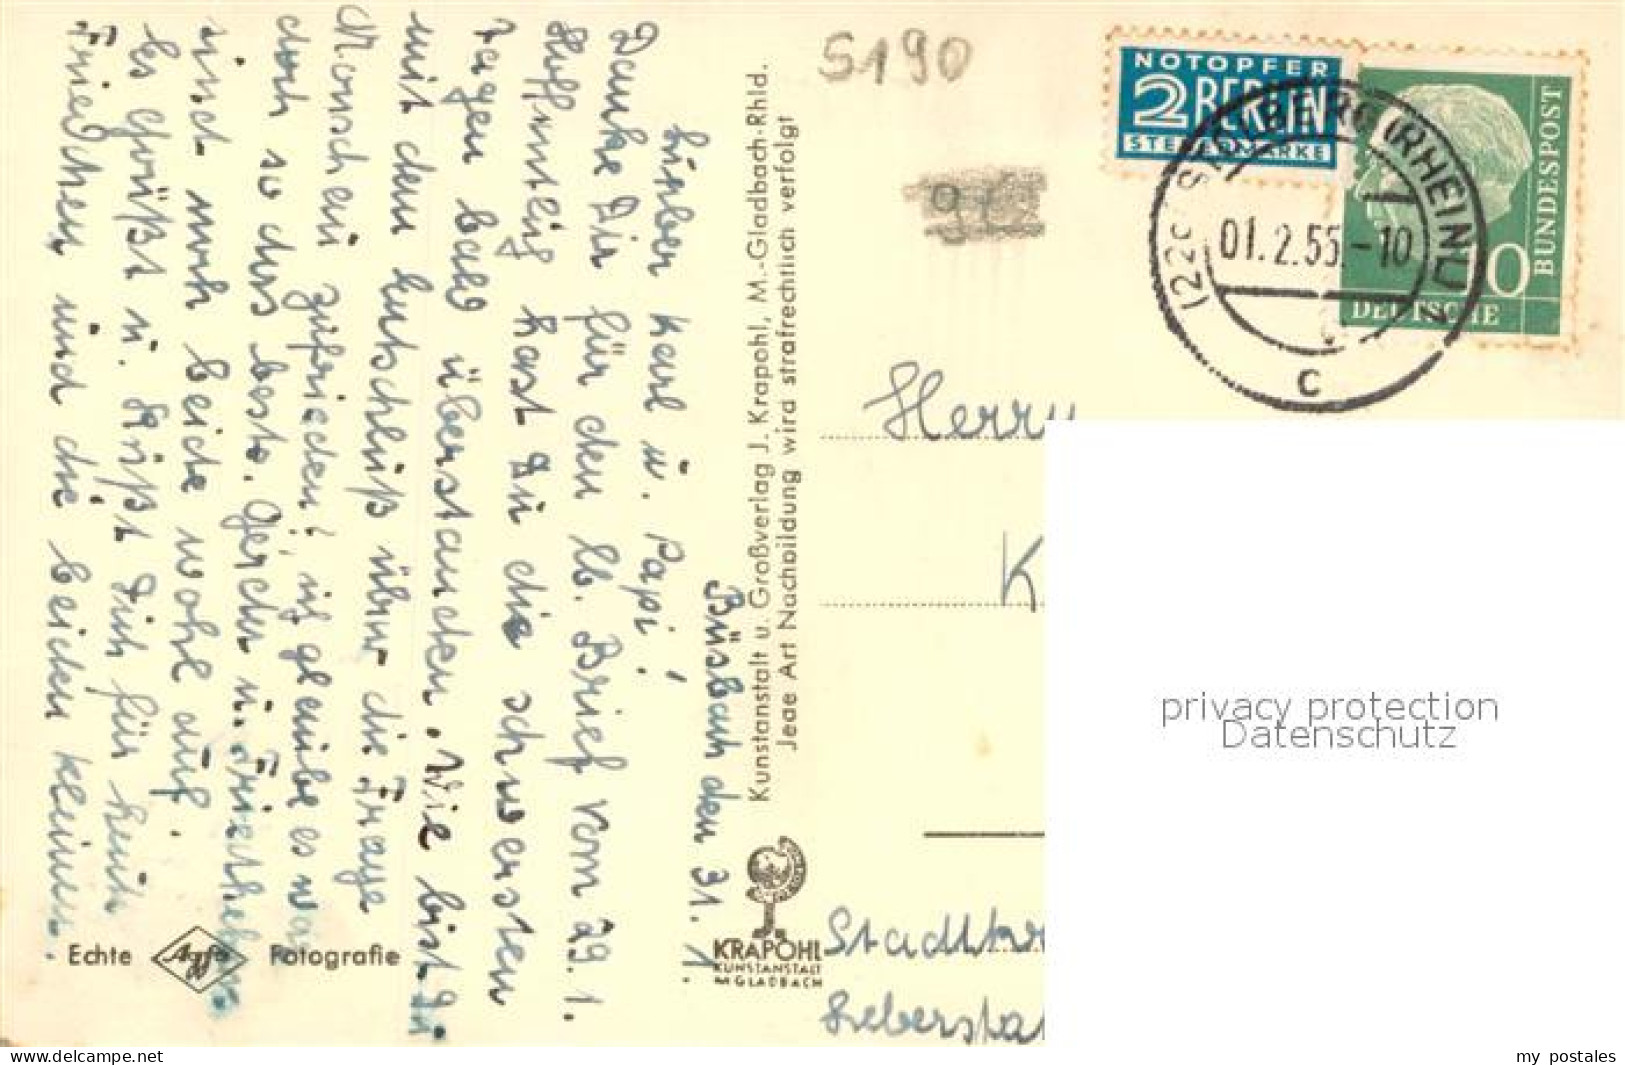 Büsbach den 31. 1.
Lieber Karl u. Papi!
Danke Dir für den lb. Brief vom 29. 1.
Hoffentlich hast Du die schwersten
Tagen bald überstanden. Wie bist Du
mit dem Entschluß über die Frage
Monschau zufrieden? ich glaube es war
doch so das beste. Gerda u. Friedhelm
sind noch beide wohl auf.
Es grüßt u. küßt Dich für heute
Friedchen und die beiden kleinen.
Echte Agfa Fotografie
Kunstanstalt u. Großverlag J. Krapohl, M.-Gladbach-Rhld.
Jede Art Nachbildung wird strafrechtlich verfolgt
KRAPOHL
KUNSTANSTALT
M GLADBACH
5190
NOTOPFER
2 BERLIN
STEUERMARKE
DEUTSCHE
BUNDESPOST
(22c) STOLBERG (RHEINL)
01.2.55.-10
c
Herrn
K
Stadtkr
Leberstr
privacy protection
Datenschutz
my postales